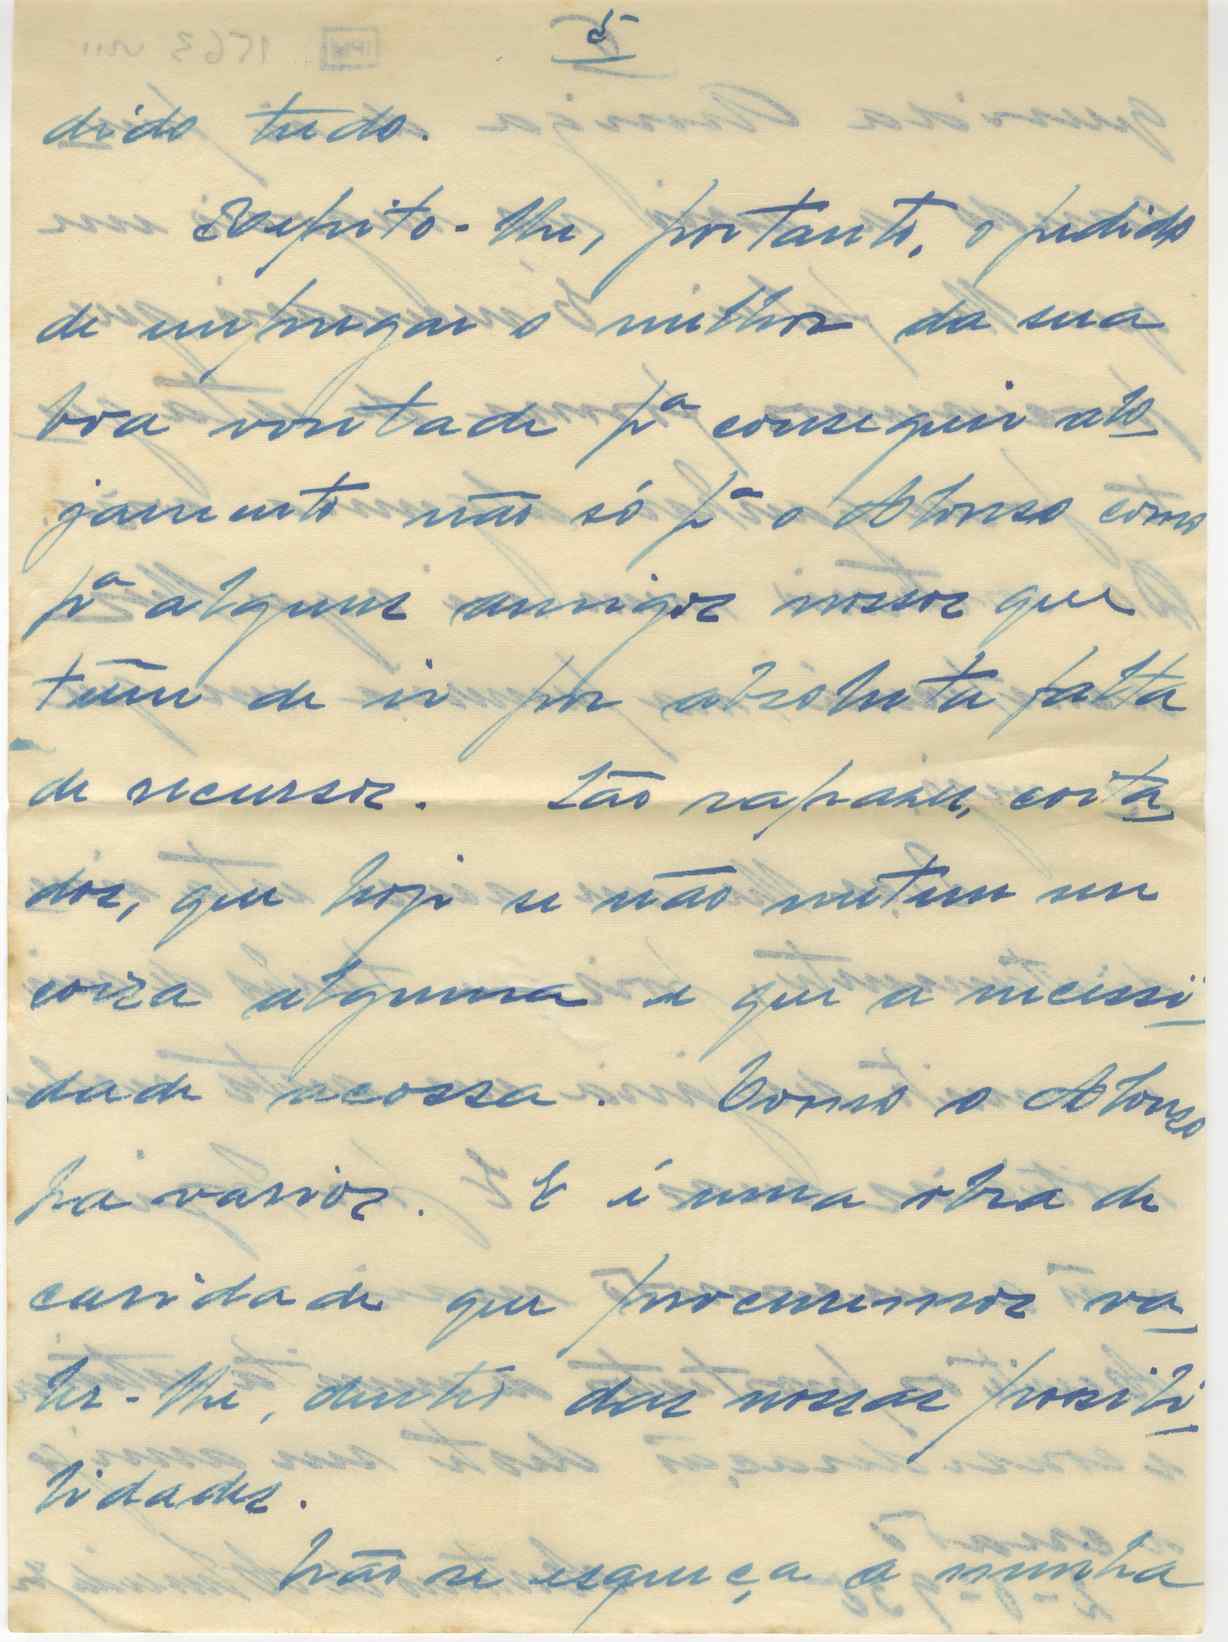 5
dido tudo.
Repito-lhe, portanto, o pedido
de empregar o melhor da sua
boa vontade pª conseguir alo
jamento não só pª o Afonso como
pª alguns amigos nossos que
teem de ir por absoluta falta
de recursos. São rapazes, coita
dos, que hoje se não metem em
coiza alguma e que a necessi
dade acossa. Como o Afonso
há varios. E é uma obra de
caridade que procuremos va
ler-lhe, dentro das nossas possibi
lidades.
Não se esqueça a minha